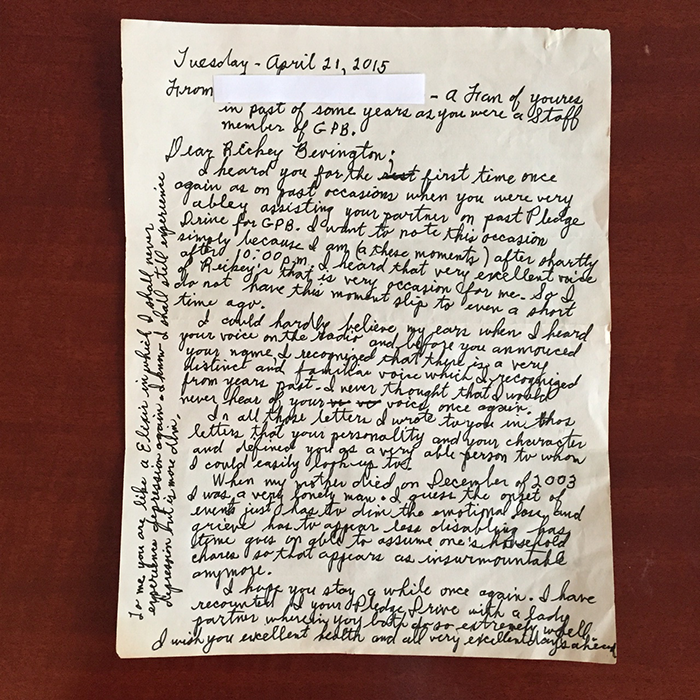 Tuesday - April 21, 2015
From - a Fan of youres
in past of some years as you were a Staff
member of GPB.
Dear Rickey Bevington;
I heard you for the first time once
again as on past occasions when you were very
abley assisting your partner on past Pledge
Drive for GPB. I want to note this occasion
simply because I am (a these moments) after shortly
after 10:00 p.m. I heard that very excellent voice
of Rickey's that is very occasion for me. So I
do not have this moment slip to even a short
time ago.
I could hardly believe my ears when I heard
your voice on the radio and before you annouced
your name, I recognized that there is a very
distinct and familiar voice which I recognized
from years past. I never thought that I would
never hear of your voice once again.
In all those letters I wrote to you in thos
letters that your personality and your character
and defined you as a very able person to whom
I could easily look up to.
When my mother died on December of 2003
I was a very lonely man. I guess the onset of
events just has to dim the emotional lose, and
grieve has to appear less disabling has
time goes on able to assume one's household
chares so that appears as insurmountable
anymore.
I hope you stay a while once again. I have
recounted your Pledge Drive with a lady
partner wherein you both do so extremely well.
I wish you excellent health and all very excellent days ahead
To me you are like a Elixir in which I shall never
experience depression again. I know I shall still experience
depression but is more dim.